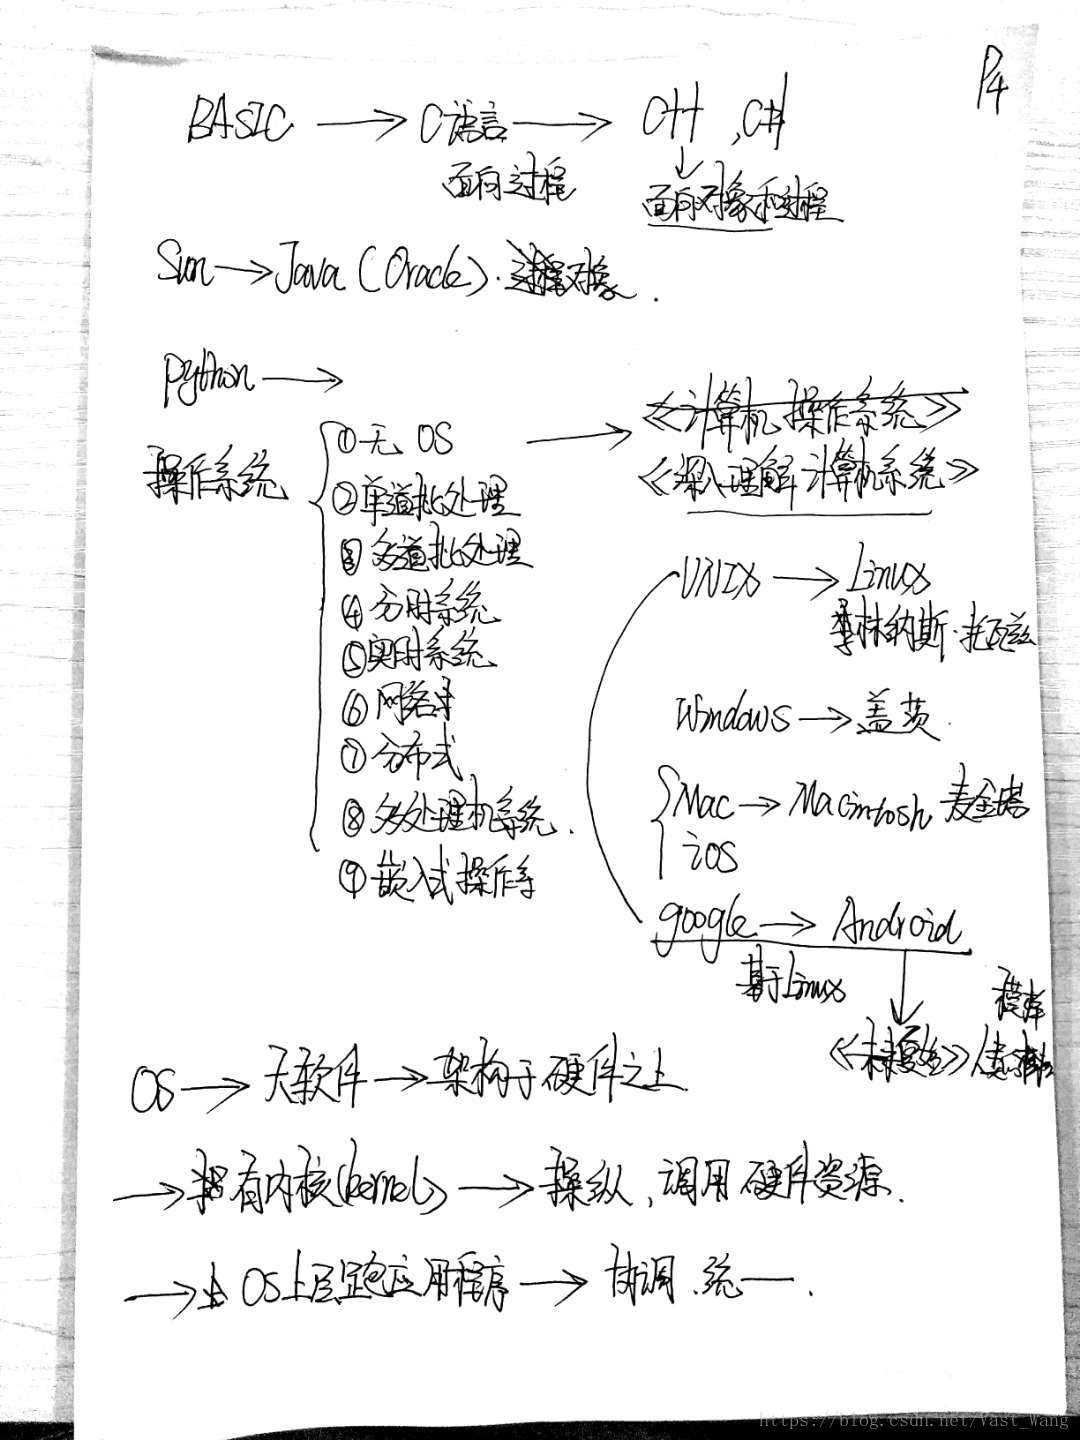 P4
BASIC → C语言 → C++ , C#
面向过程
面向对象和过程
Sun → Java (Oracle). 对象.
python →
操作系统
①无 OS → 《计算机操作系统》
②单道批处理
《深入理解计算机系统》
③多道批处理
④分时系统
⑤实时系统
⑥网络
⑦分布式
⑧多处理机系统.
⑨嵌入式操作系
UNIX → Linux
林纳斯·托瓦兹
Windows → 盖茨.
Mac → Macintosh 麦金塔
iOS
google → Android
基于Linux
《 》
OS → 大软件 → 架构于硬件之上
→ 拥有内核(kernel) → 操纵、调用硬件资源.
→ 在OS上层跑应用程序 → 协调、统一.
https://blog.csdn.net/Vast_Wang